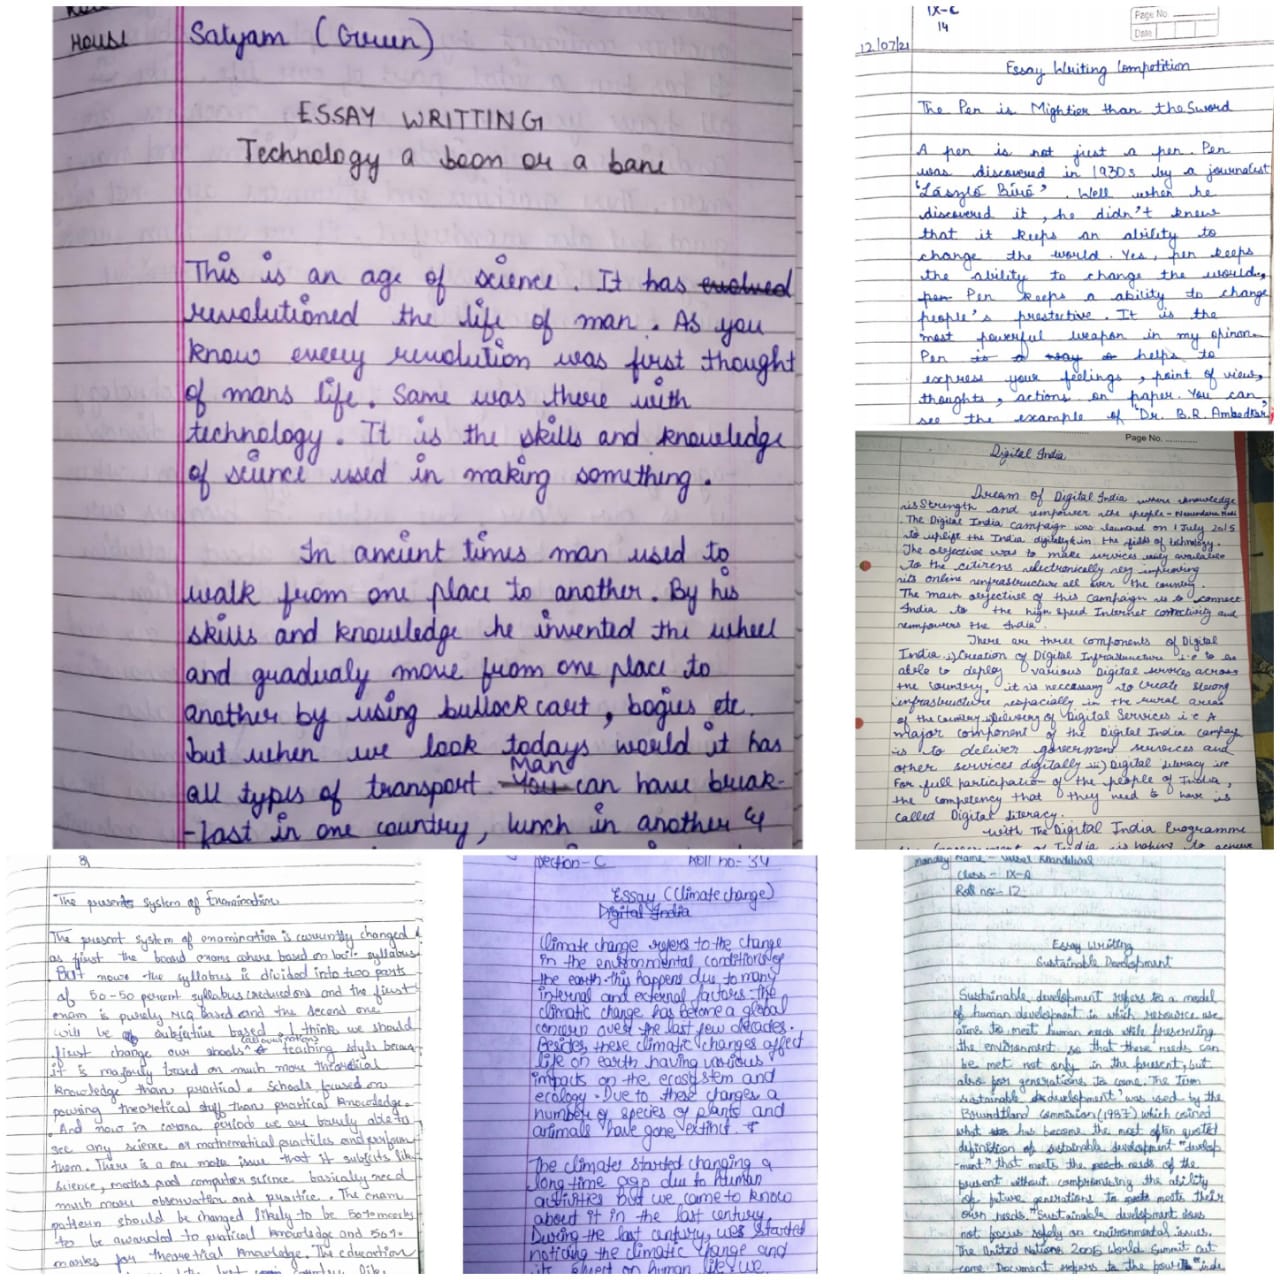 House
Satyam (Green)
ESSAY WRITTING
Technology a boon or a bane
This is an age of science. It has evolved
revolutioned the life of man. As you
know every revolution was first thought
of mans life. Same was there with
technology. It is the skills and knowledge
of science used in making something.
In ancient times man used to
walk from one place to another. By his
skills and knowledge he invented the wheel
and gradualy move from one place to
another by using bullock cart, bogies etc.
but when we look todays world it has
Man
all types of transport. You can have break-
-fast in one country, lunch in another &
IX-C
14
Page No.
Date
12/07/21
Essay Writing Competition
The Pen is Mightier than the Sword
A pen is not just a pen. Pen
was discovered in 1930s by a journalist
'László Bíró'. Well when he
discovered it, he didn't knew
that it keeps an ability to
change the world. Yes, pen keeps
the ability to change the world,
pen Pen keeps a ability to change
people's prestective. It is the
most powerful weapon in my opinon.
Pen is a way to helps to
express your feelings, point of view,
thoughts, actions on paper. You can
see the example of 'Dr. B.R. Ambedkar'
Page No.
Digital India
Dream of Digital India where knowledge
is Strength and empower the people - Narendara Modi
The Digital India campaign was launched on 1 July 2015
to uplift the India digitally in the fields of technology.
The objective was to make services easily available
to the citizens electronically by improving
its online infrastructure all over the country.
The main objective of this campaign is to connect
India to the high speed Internet conectivity and
empowers the India.
There are three components of Digital
India i) Creation of Digital Infrastructure i.e to be
able to deploy various Digital services across
the Country, it is neccesary to create strong
infrastructure especially in the rural areas
of the country. Delivery of Digital Services i.e A
major component of the Digital India campaign
is to deliver goverment services and
other services digitally iii) Digital literacy i.e
For full participation of the people of India,
the competency that they need to have is
called Digital literacy.
With The Digital India Programme
of India is hoping to achieve
The present system of Examination
The present system of examination is currently changed
as first the board exams where based on 100% syllabus
But now the syllabus is divided into two parts
of 50-50 percent syllabus (reduced one and the first
exam is purely MCQ based and the second one
will be subjective based. I think we should
first change our shools teaching style because
it is majorly based on much more theoretical
knowledge than practical. Schools foused on
pouring theoretical stuff than practical knowledge.
And now in corona periods we are barely able to
see any science or mathematical practiles and perform
them. There is a one more issue that if subjects like
science, maths and computer science basically need
much more observation and practice. The exam
pattern should be changed likely to be 50% marks
to be awarded to pratical knowledge and 50%
marks for theoretial knowledge. The education
Section- C Roll no- 34
Essay (Climate change)
Digital India
Climate change refers to the change
in the environmental conditions of
the earth. this happens due to many
internal and external factors. the
climatic change has become a global
concern over the last few decades.
Besides, these climatic changes affect
life on earth having various
impacts on the ecosystem and
ecology. Due to these changes a
number of species of plants and
animals have gone extinct.
The climates started changing a
long time ago due to human
activities but we came to know
about it in the last century.
During the last century, we started
noticing the climatic change and
its effect on human life. We
Class - IX-A
Roll no:- 12
Essay Writing
Sustainable Development
Sustainable development refers to a model
of human development in which resource use
aims to meet human needs while preserving
the environment so that these needs can
be met not only in the present, but
also for generations to come. The term
'sustainable development' was used by the
Brundtland commission (1987) which coined
what has become the most often quoted
definition of sustainable development "develop
-ment" that meets the needs of the
present without compromising the ability
of future generations to meets their
own needs. "Sustainable development does
not focus solely on environmental issues.
The United Nations 2005 World Summit out
come Document refers to the